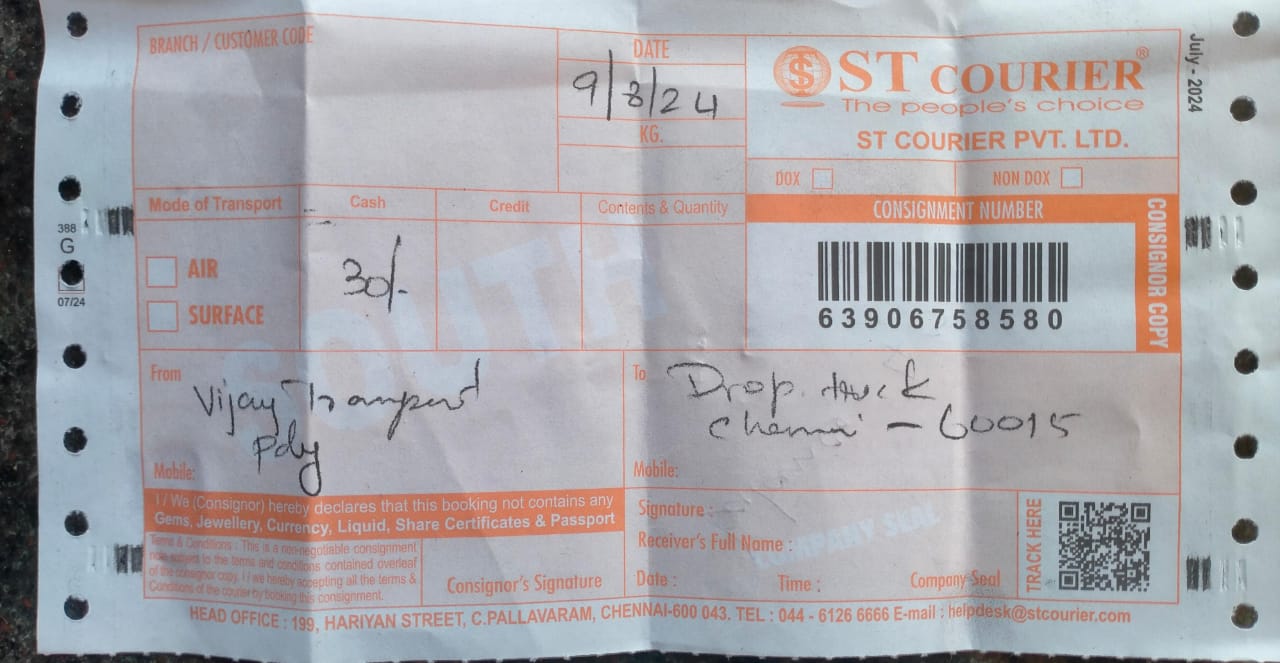 BRANCH / CUSTOMER CODE
DATE
9/8/24
KG.
ST COURIER®
The people's choice
ST COURIER PVT. LTD.
DOX
NON DOX
July - 2024
Mode of Transport
Cash
Credit
Contents & Quantity
CONSIGNMENT NUMBER
CONSIGNOR COPY
388
G
07/24
AIR
SURFACE
30/-
SOUTH
63906758580
From
Vijay Transport
Pdy
Mobile:
To
Drop truck
Chennai - 60015
Mobile:
I / We (Consignor) hereby declares that this booking not contains any
Gems, Jewellery, Currency, Liquid, Share Certificates & Passport
Terms & Conditions : This is a non-negotiable consignment
note subject to the terms and conditions contained overleaf
of the consignor copy. I / we hereby accepting all the terms &
Conditions of the courier by booking this consignment.
Consignor's Signature
Signature :
Receiver's Full Name :
COMPANY SEAL
Date :
Time :
Company Seal
TRACK HERE
HEAD OFFICE : 199, HARIYAN STREET, C.PALLAVARAM, CHENNAI-600 043. TEL : 044 - 6126 6666 E-mail : helpdesk@stcourier.com